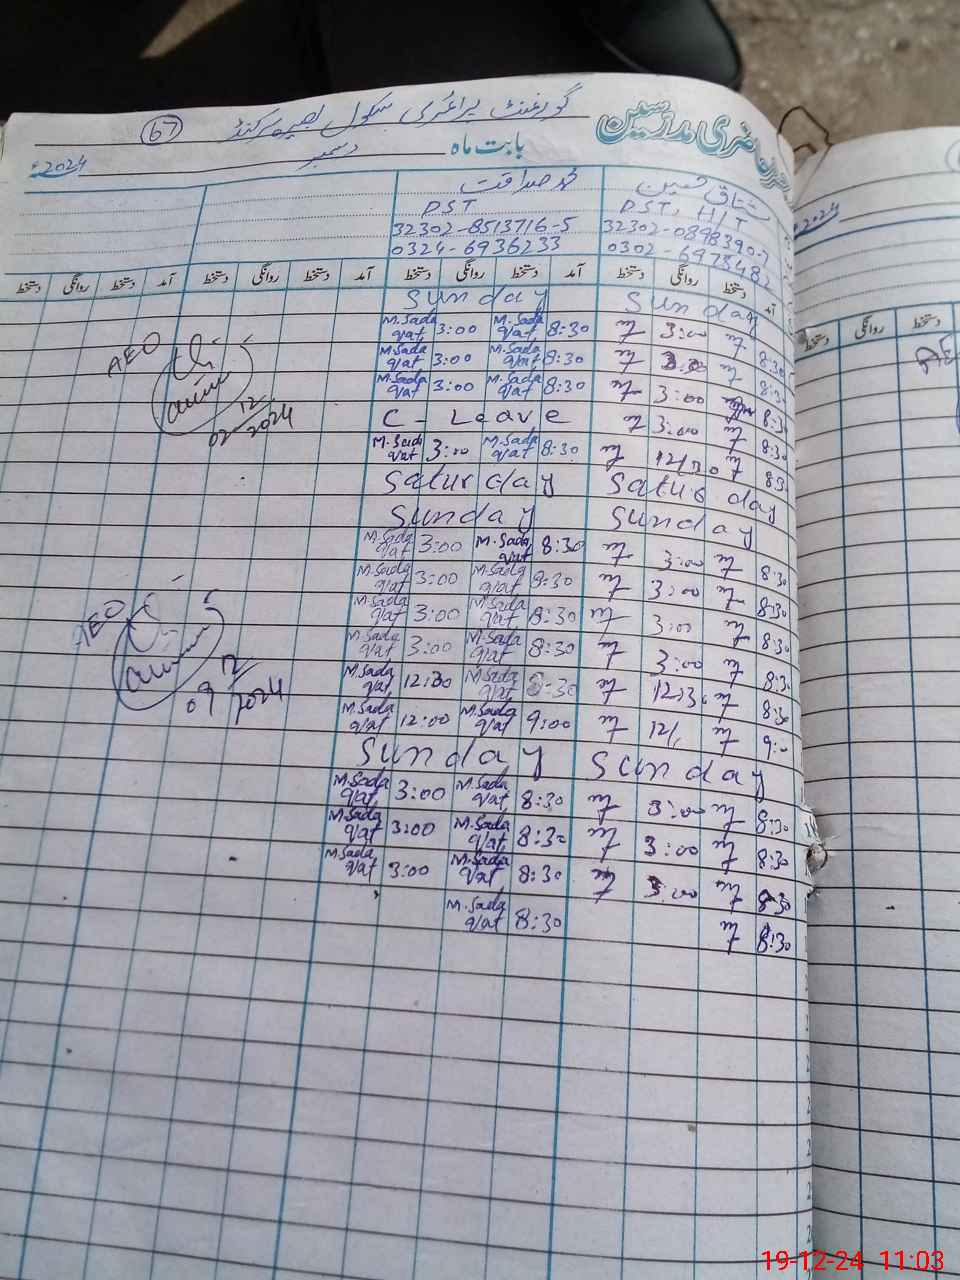 حاضری مدرسین
گورنمنٹ پرائمری سکول
67
بابت ماہ دسمبر 2024
محمد صداقت
PST PST, H/T
32302-8513716-5
0324-6936233 0302-
آمد دستخط روانگی دستخط آمد دستخط روانگی دستخط آمد دستخط روانگی دستخط
Sunday Sunday
8:30 3:00 8:30 M.Sadaqat 3:00 M.Sadaqat
8:30 3:00 8:30 M.Sadaqat 3:00 M.Sadaqat
8:30 3:00 8:30 M.Sadaqat 3:00 M.Sadaqat
8:30 3:00 C - Leave
8:30 12/30 8:30 M.Sadaqat 3:00 M.Sadaqat
Saturday Saturday
Sunday Sunday
8:30 3:00 8:30 M.Sadaqat 3:00 M.Sadaqat
8:30 3:00 8:30 M.Sadaqat 3:00 M.Sadaqat
8:30 3:00 8:30 M.Sadaqat 3:00 M.Sadaqat
8:30 3:00 8:30 M.Sadaqat 3:00 M.Sadaqat
8:30 8:30 M.Sadaqat 12:30 M.Sadaqat
9:00 M.Sadaqat 12:00 M.Sadaqat
Sunday Sunday
8:30 3:00 8:30 M.Sadaqat 3:00 M.Sadaqat
8:30 3:00 8:30 M.Sadaqat 3:00 M.Sadaqat
8:30 3:00 8:30 M.Sadaqat 3:00 M.Sadaqat
8:30 8:30 M.Sadaqat
AEO
02 12/2024
AEO
09 12/2024
2024
دستخط روانگی دستخط
19-12-24 11:03